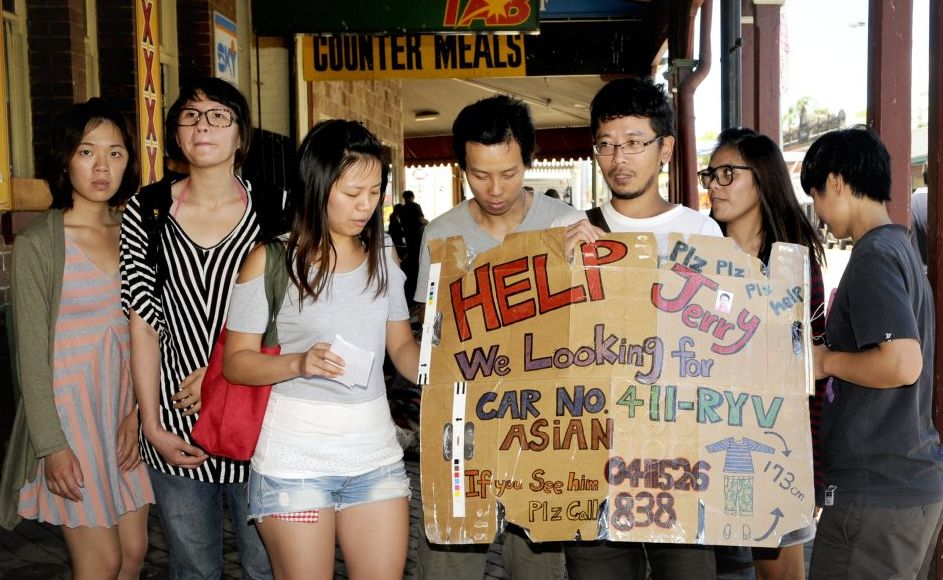 TAB
COUNTER MEALS
XXXX
SKY
HELP
Plz Plz
Plz
help
Jerry
We Looking for
CAR NO. 411-RYV
ASIAN
If you See him
Plz Call
0411526
838
173cm